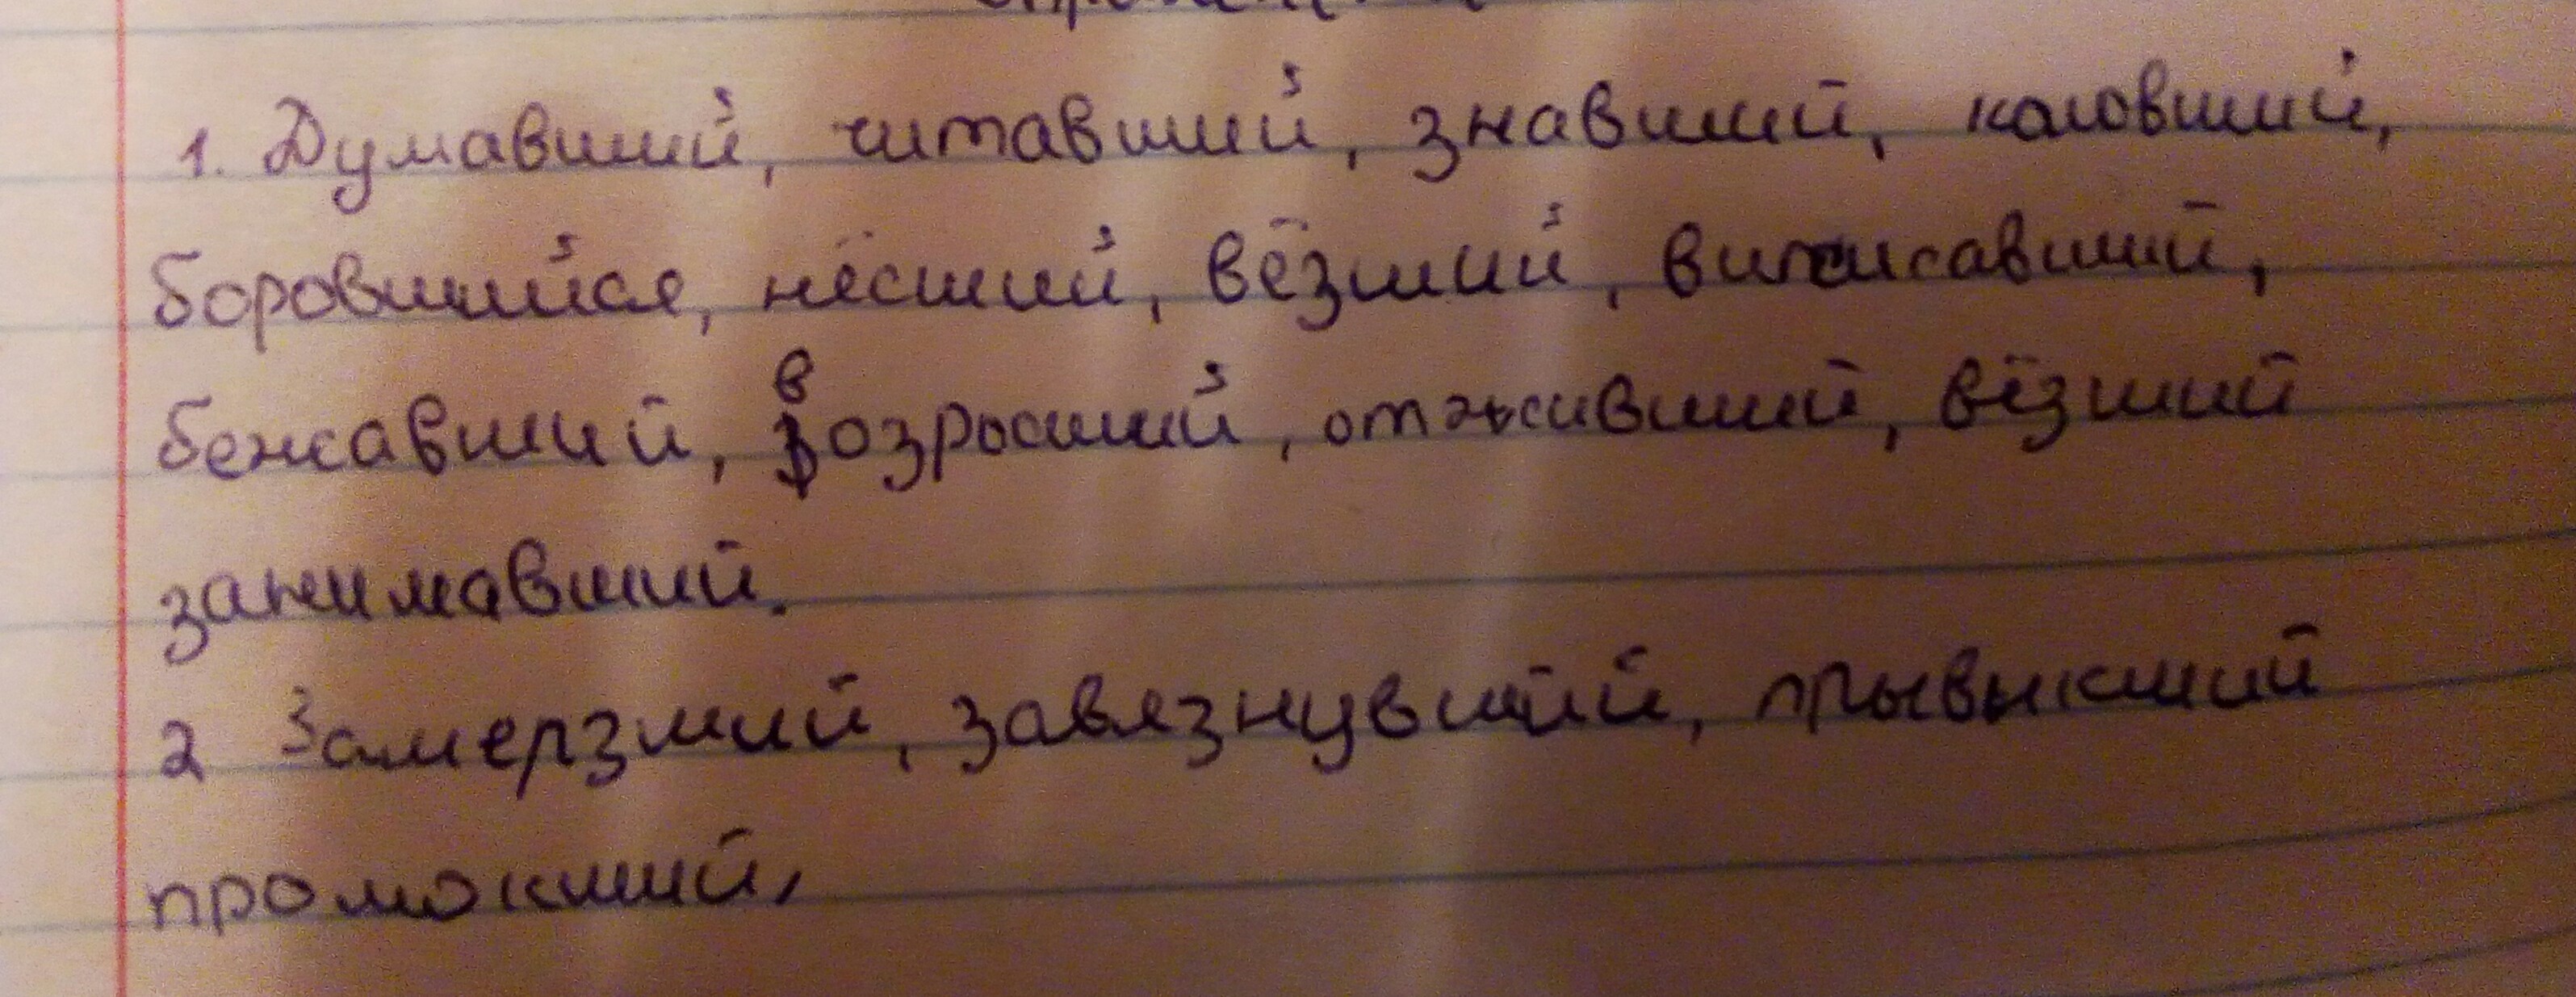 1. Думавший, читавший, знавший, коловший,
боровшийся, нёсший, вёзший, виписавший,
бежавший, возросший, отживший, вёзший
занимавший.
2 Замерзший, завязнувший, прывыкший
промокший,